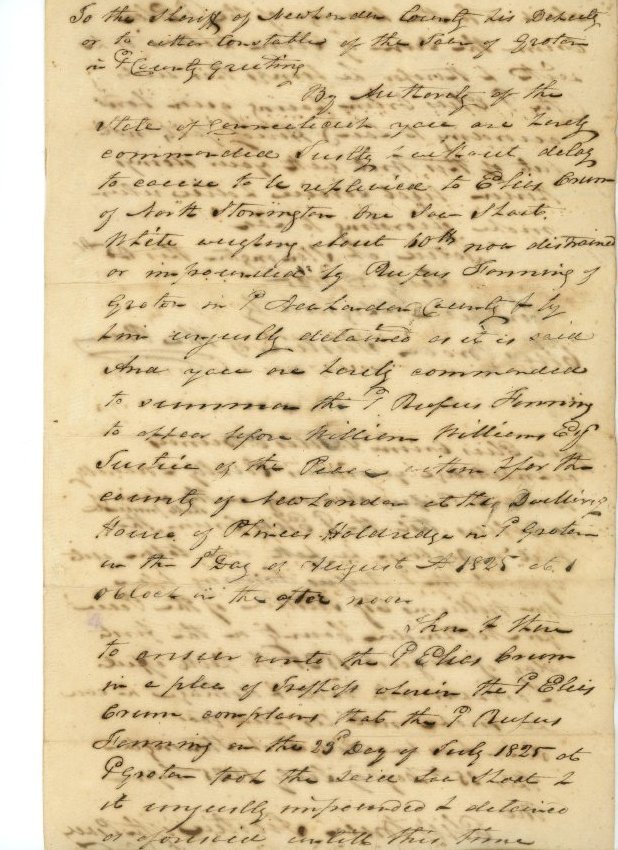 To the Sheriff of New London County his Deputy
or to either Constable of the Town of Groton
in sd County Greeting
By Authority of the
State of Connecticut you are hereby
commanded Justly & without delay
to cause to be replevied to Elias Crum
of North Stonington One Sow Shoat
White weighing about 60 lb now distrained
or impounded by Rufus Fanning of
Groton in sd New London County & by
him unjustly detained as it is said
And you are hereby commanded
to summon the sd Rufus Fanning
to appear before William Williams Esqr
Justice of the Peace within & for the
county of New London at the Dwelling
House of Phineas Holdredge in sd Groton
on the 1st Day of August AD 1825 at 1
oClock in the after noon
Then & there
to answer unto the sd Elias Crum
in a plea of Trespass wherein the sd Elias
Crum complains that the sd Rufus
Fanning on the 23d Day of July 1825 at
sd Groton took the said Sow Shoat &
it unjustly impounded & detained
as aforesaid untill this time